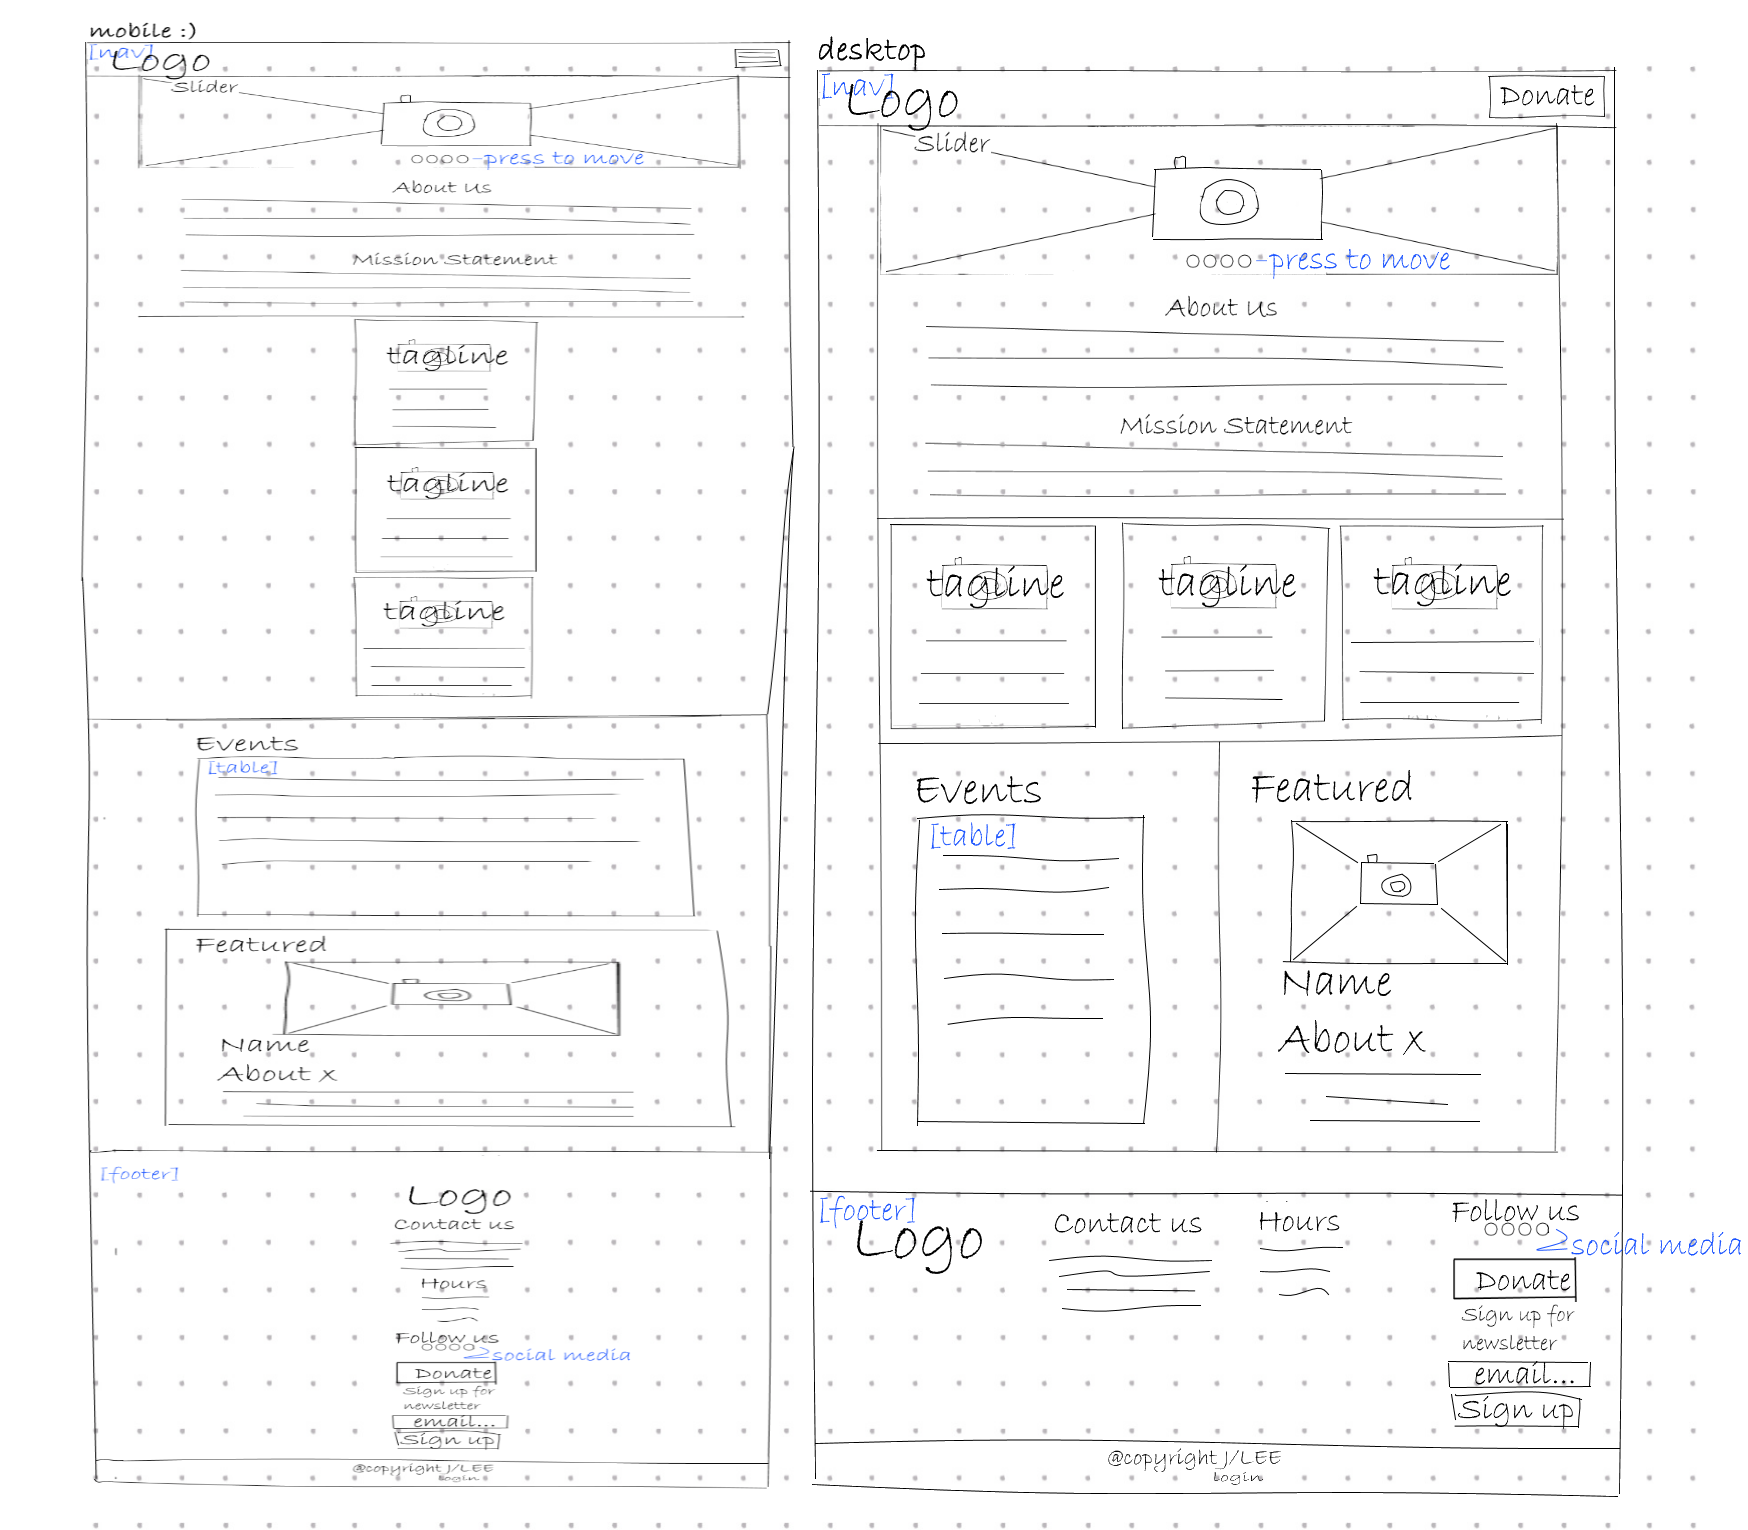 mobile :)
[nav]
Logo
Slider
-press to move
About Us
Mission Statement
tagline
tagline
tagline
Events
[table]
Featured
Name
About x
[footer]
Logo
Contact us
Hours
Follow us
social media
Donate
Sign up for
newsletter
email...
Sign up
@copyright J/LEE
login
desktop
[nav]
Logo
Donate
Slider
-press to move
About Us
Mission Statement
tagline
tagline
tagline
Events
[table]
Featured
Name
About x
[footer]
Logo
Contact us
Hours
Follow us
social media
Donate
Sign up for
newsletter
email...
Sign up
@copyright J/LEE
login